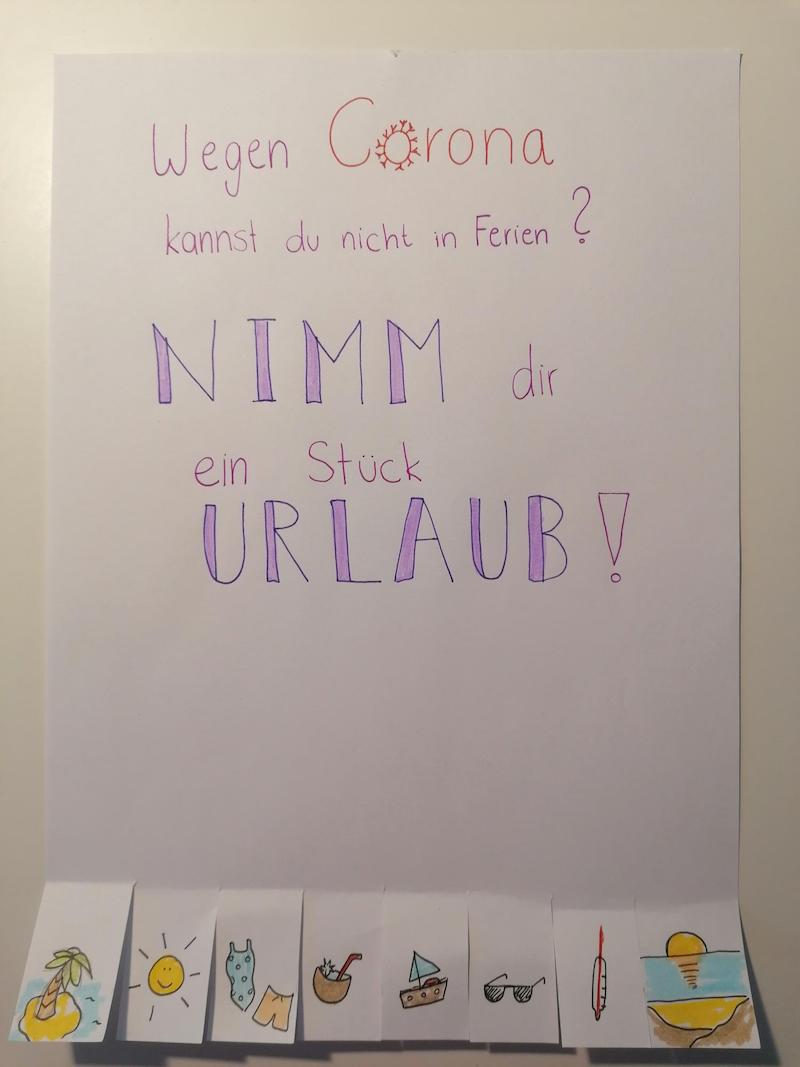 Wegen Corona
kannst du nicht in Ferien?
NIMM dir
ein Stück
URLAUB!